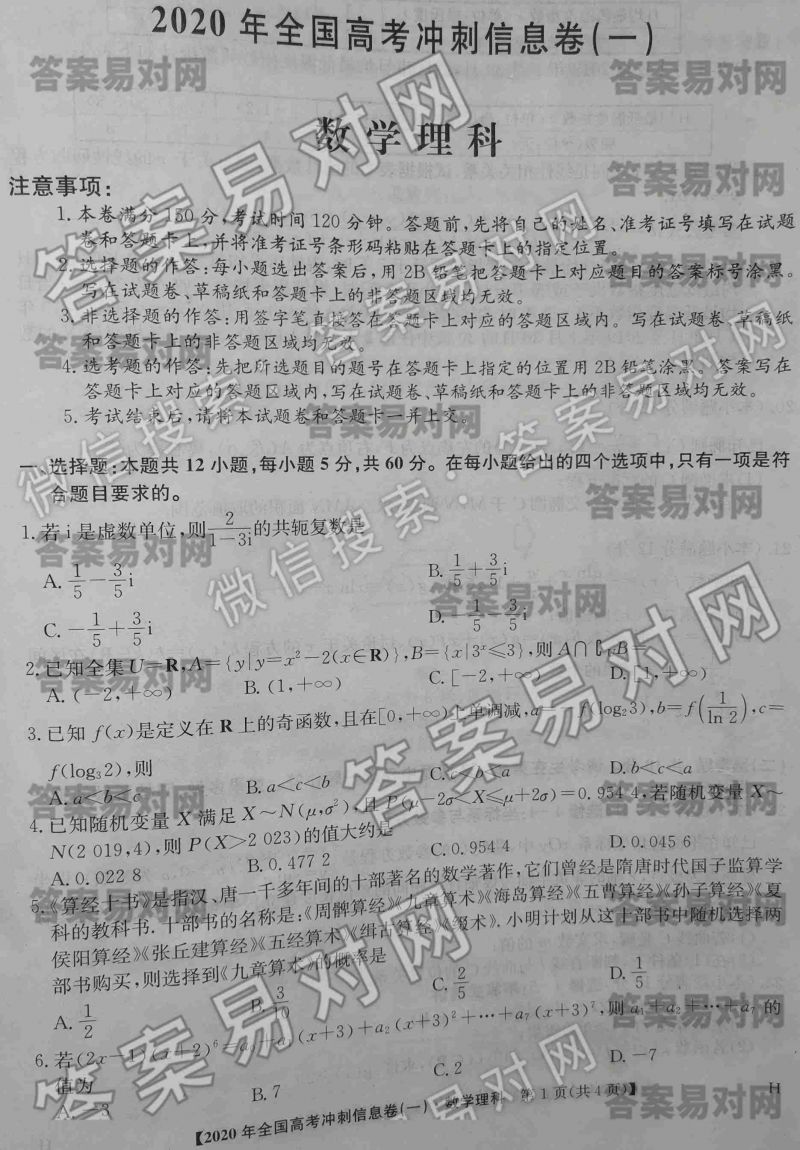 2020年全国高考冲刺信息卷(一)
数学理科
注意事项:
1.本卷满分150分,考试时间120分钟。答题前,先将自己的姓名、准考证号填写在试题
卷和答题卡上,并将准考证号条形码粘贴在答题卡上的指定位置。
2.选择题的作答:每小题选出答案后,用2B铅笔把答题卡上对应题目的答案标号涂黑。
写在试题卷、草稿纸和答题卡上的非答题区域均无效。
3.非选择题的作答:用签字笔直接答在答题卡上对应的答题区域内。写在试题卷、草稿纸
和答题卡上的非答题区域均无效。
4.选考题的作答:先把所选题目的题号在答题卡上指定的位置用2B铅笔涂黑。答案写在
答题卡上对应的答题区域内,写在试题卷、草稿纸和答题卡上的非答题区域均无效。
5.考试结束后,请将本试题卷和答题卡一并上交。
一、选择题:本题共12小题,每小题5分,共60分。在每小题给出的四个选项中,只有一项是符
合题目要求的。
1.若i是虚数单位,则2/(1-3i)的共轭复数是
A. 1/5-3/5i
B. 1/5+3/5i
C. -1/5+3/5i
D. -1/5-3/5i
2.已知全集U=R,A={y|y=x²-2(x∈R)},B={x|3ˣ≤3},则A∩∁UB=
A.(-2,+∞)
B.(1,+∞)
C.[-2,+∞)
D.[1,+∞)
3.已知f(x)是定义在R上的奇函数,且在[0,+∞)上单调减,a= f(log₂3),b=f(1/ln 2),c=
f(log₃2),则
A.a<b<c
B.a<c<b
C.c<a<b
D.b<c<a
4.已知随机变量X满足X~N(μ,σ²),且P(μ-2σ<X≤μ+2σ)=0.954 4,若随机变量X~
N(2 019,4),则P(X>2 023)的值大约是
A.0.022 8
B.0.477 2
C.0.954 4
D.0.045 6
5.《算经十书》是指汉、唐一千多年间的十部著名的数学著作,它们曾经是隋唐时代国子监算学
科的教科书.十部书的名称是:《周髀算经》《九章算术》《海岛算经》《五曹算经》《孙子算经》《夏
侯阳算经》《张丘建算经》《五经算术》《缉古算经》《缀术》.小明计划从这十部书中随机选择两
部书购买,则选择到《九章算术》的概率是
A. 1/2
B. 3/10
C. 2/5
D. 1/5
6.若(2x-1)(x+2)⁶=a₀+a₁(x+3)+a₂(x+3)²+…+a₇(x+3)⁷,则a₁+a₂+…+a₇的
值为
A.-3
B.7
C.2
D.-7
【2020年全国高考冲刺信息卷(一)·数学理科 第1页(共4页)】
H
答案易对网
微信搜索:答案易对网